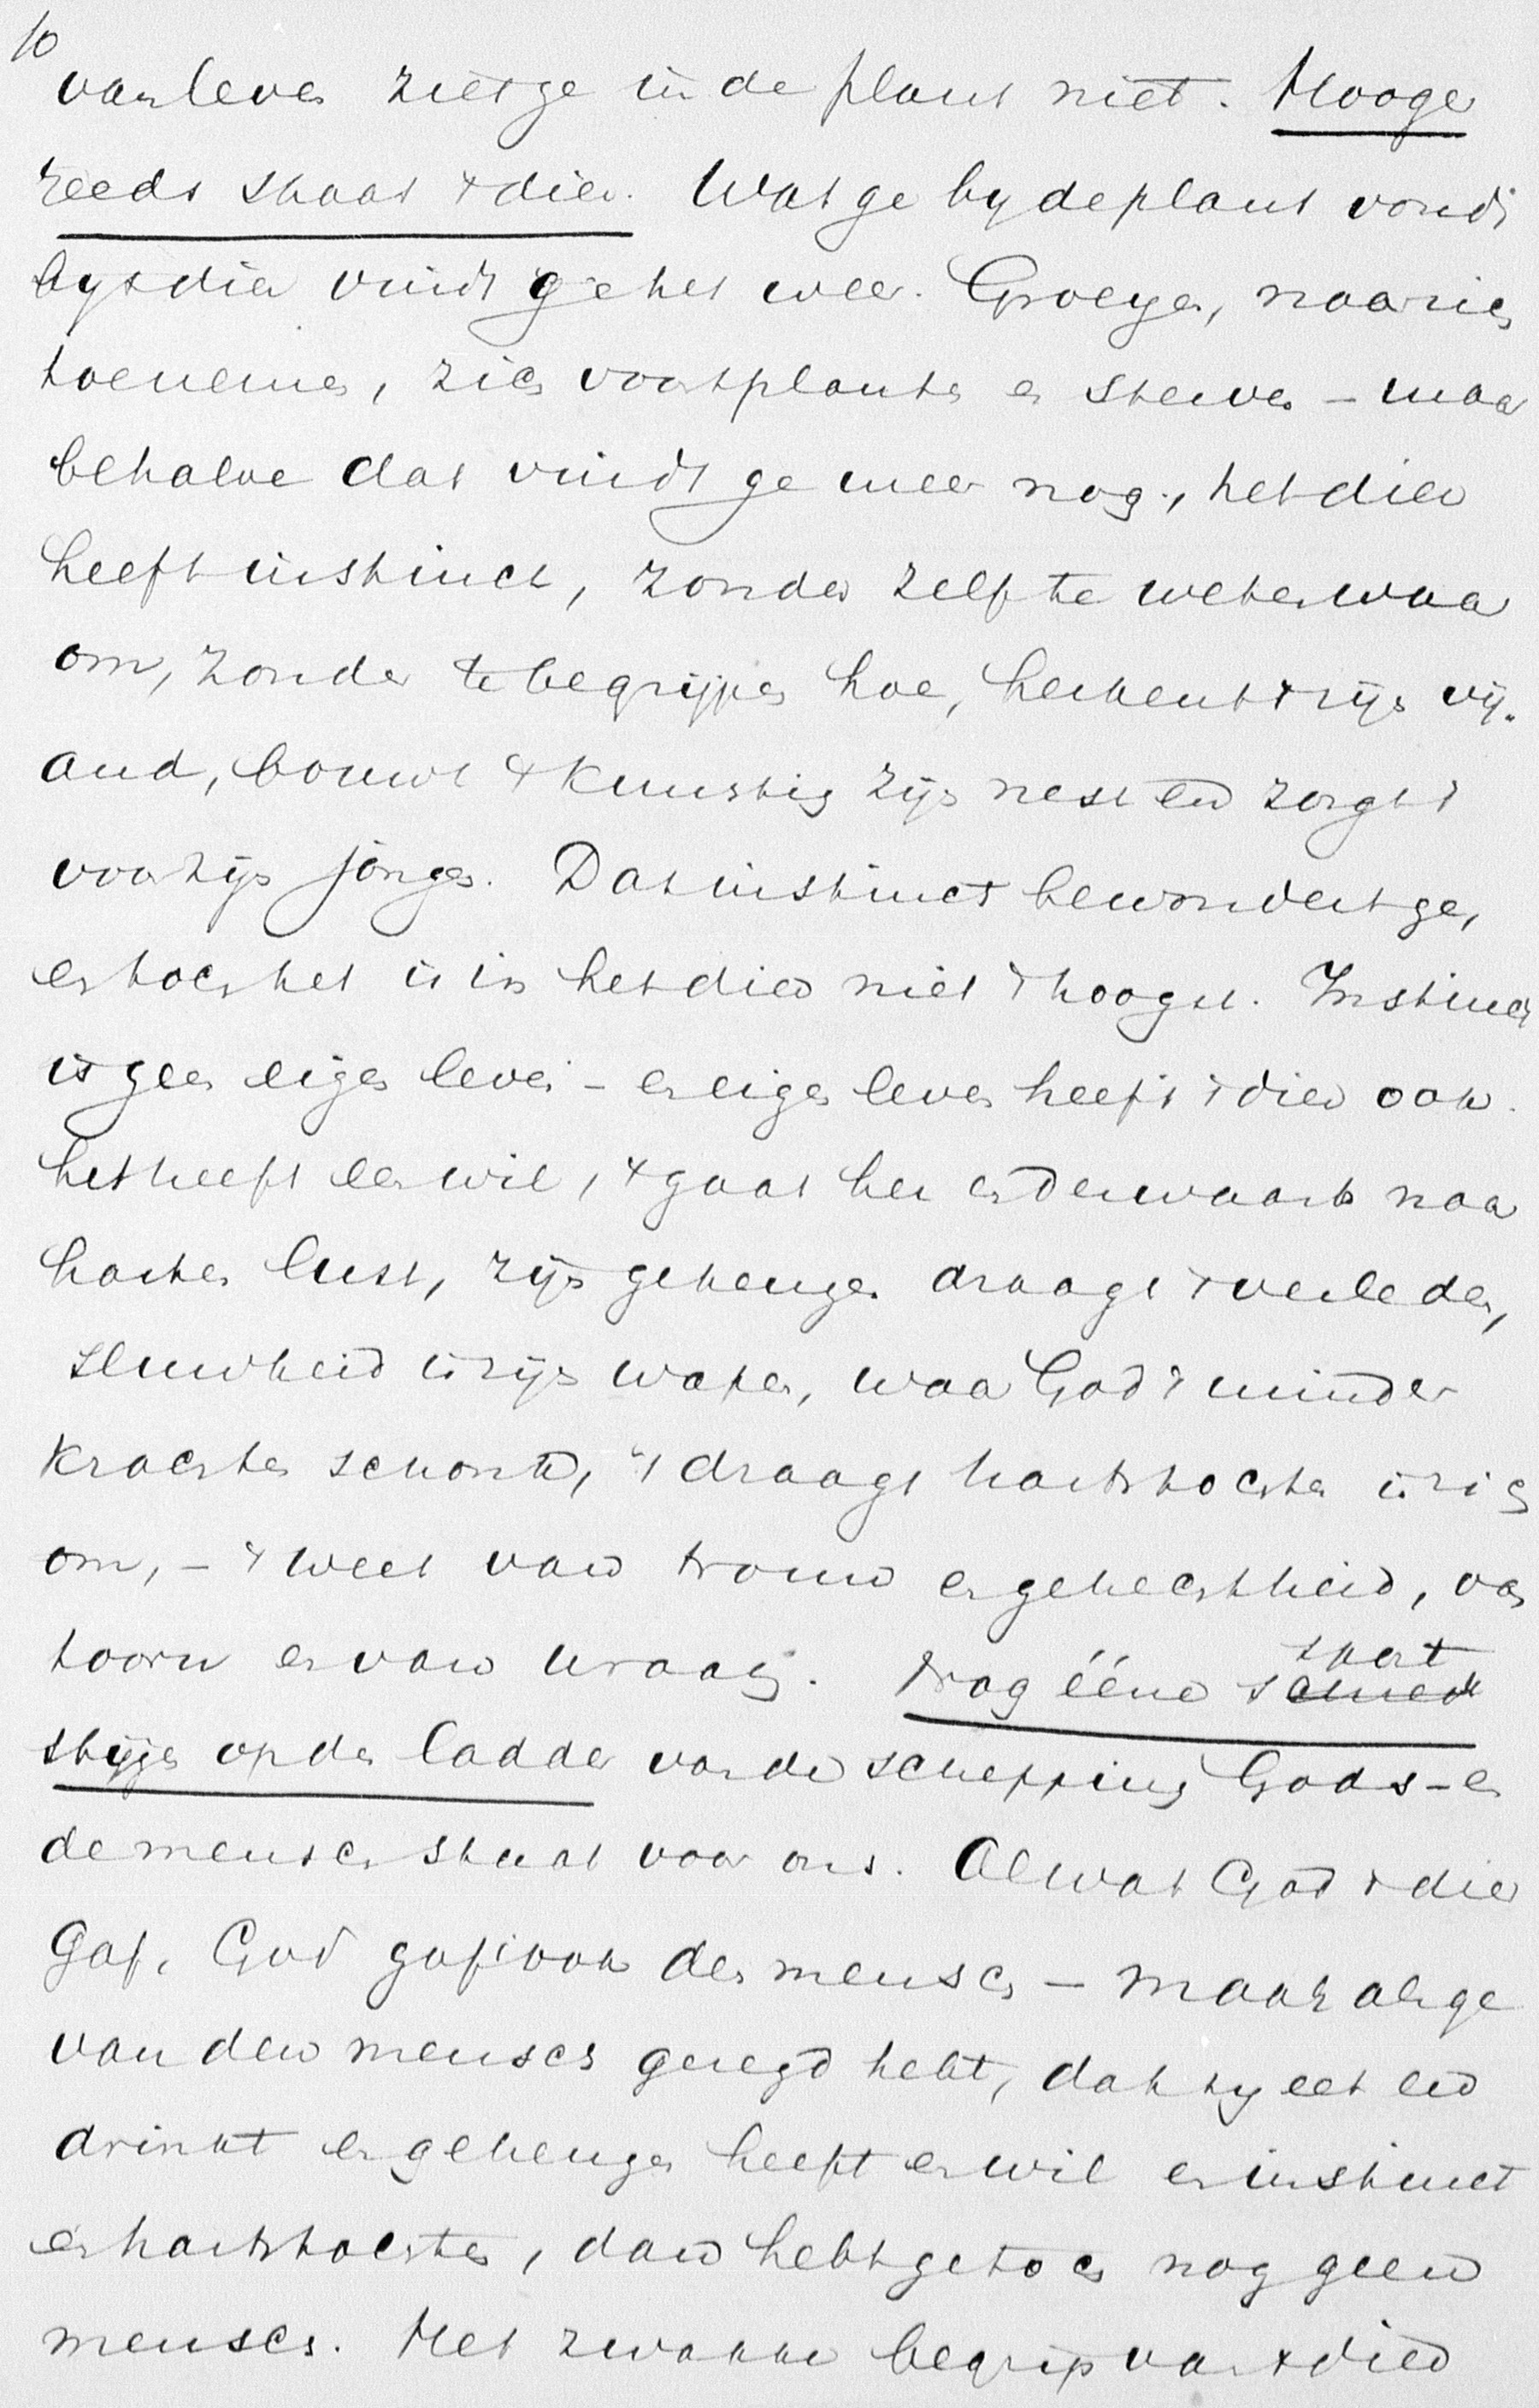 10
van leven ziet ge in de plant niet. Hooger
reeds staat 't dier. Wat ge by de plant vondt
by 't dier vindt ge het weer. Groeyen, naar zich
toenemen, zich voortplanten en sterven – maar
behalve dat vindt ge meer nog, het dier
heeft instinct, zonder zelf te weten waar
om, zonder te begrijpen hoe, herkent 't zijn vij-
and, bouwt 't kunstig zijn nest en zorgt 't
voor zijn jongen. Dat instinct bewondert ge,
en toch het is in het dier niet 't hoogst. Instinct
is geen eigen leven – en eigen leven heeft 't dier ook.
het heeft een wil, 't gaat her en derwaarts naar
harten lust, zijn geheugen draagt 't verleden,
sluwheid is zijn wapen, waar God 't minder
krachten schonk, 't draagt hartstochten in zich
om, – 't weet van trouw en gehechtheid, van
toorn en van wraak. Nog ééne sport
stijgen op den ladder van de schepping Gods – en
de mensch staat voor ons. Al wat God 't dier
gaf, God gaf 't ook den mensch – maar als ge
van den mensch gezegd hebt, dat hy eet en
drinkt en geheugen heeft en wil en instinct
en hartstochten, dan hebt ge toch nog geen
mensch. Het zwakke begrip van 't dier